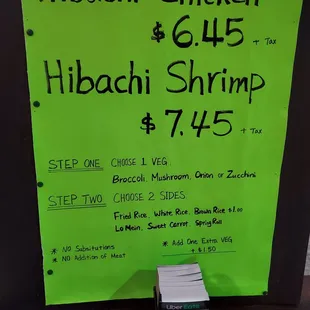 Hibachi Chicken
$6.45 + Tax
Hibachi Shrimp
$7.45 + Tax
STEP ONE CHOOSE 1 VEG.
Broccoli, Mushroom, Onion or Zucchini
STEP TWO CHOOSE 2 SIDES
Fried Rice, White Rice, Brown Rice $1.00
Lo Mein, Sweet Carrot, Sprig Roll
* NO Substitutions
* NO Addition of Meat
* Add One Extra VEG
+ $1.50
Uber Eats